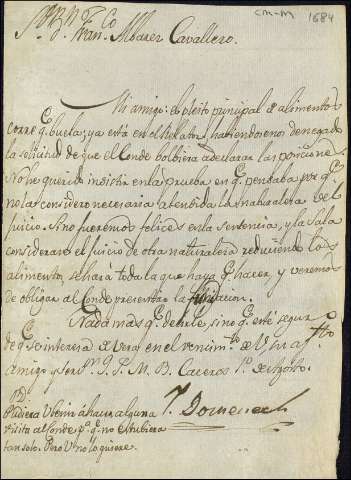 CM-M 1684
Sr. Dn. Franco.
Albarez Cavallero.
Mi amigo: el pleito principal de alimentos
corre q. buela; ya está en el Relator, haviendosenos denegado
la solicitud de que el Conde bolbiera a declarar las porciones.
No he querido insistir en la prueba en q. pensaba por q.
no la considero necesaria atendida la naturaleza del
juicio. Si no fueremos felices en la sentencia, y la Sala
considerare el juicio de otra naturaleza reduciendo los
alimentos, se hara todo lo que haya q. hacer, y veremos
de obligar al Conde presentar la
Nada mas q. decirle, sino q. esté seguro
de q. se interesa de veras en el de Vm. a
Amigo y Ser. Q. S. M. B. Caceres 1o. de Agosto.
J. Domenech
PD.
Pudiera V benir á hacer alguna
visita al Conde pa. q. no estubiera
tan solo. Pero V. no lo quiere.